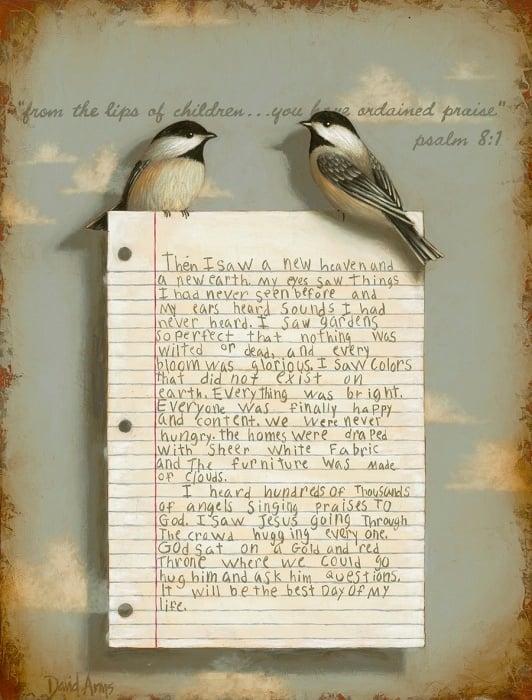 "from the lips of children...you have ordained praise"
psalm 8:1
Then I saw a new heaven and
a new earth. My eyes saw things
I had never seen before and
My ears heard sounds I had
never heard. I saw gardens
so perfect that nothing was
wilted or dead, and every
bloom was glorious. I saw colors
that did not exist on
earth. Everything was bright.
Everyone was finally happy
and content. We were never
hungry. the homes were draped
with sheer white Fabric
and The furniture was made
of clouds.
I heard hundreds of Thousands
of angels singing praises To
God. I saw Jesus going Through
The crowd hugging every one.
God sat on a Gold and red
Throne where we could go
hug him and ask him questions.
It will be the best Day of My
life.
David Arms